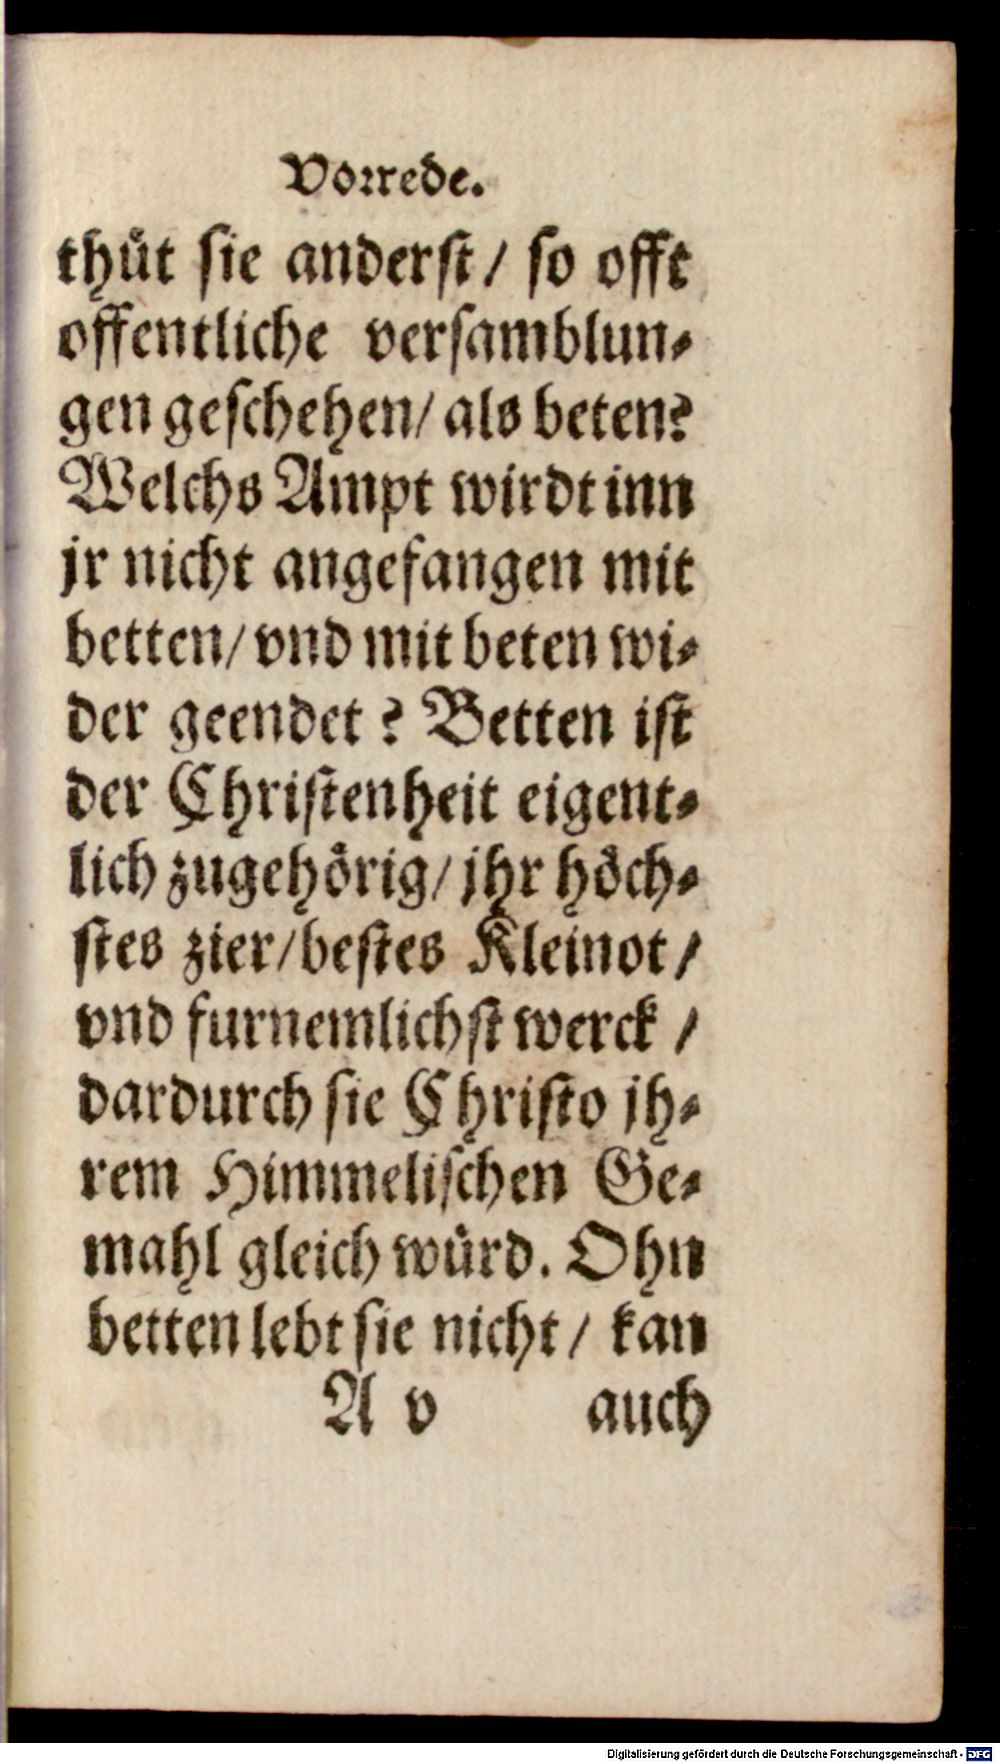 Vorrede.
thuͤt sie anderst / so offt
offentliche versamblun-
gen geschehen / als beten?
Welchs Ampt wirdt inn
jr nicht angefangen mit
betten / vnd mit beten wi-
der geendet? Betten ist
der Christenheit eigent-
lich zugehoͤrig / jhr hoͤch-
stes zier / bestes Kleinot /
vnd furnemlichst werck /
dardurch sie Christo jh-
rem Himmelischen Ge-
mahl gleich wuͤrd. Ohn
betten lebt sie nicht / kan
A v auch
Digitalisierung gefördert durch die Deutsche Forschungsgemeinschaft - DFG